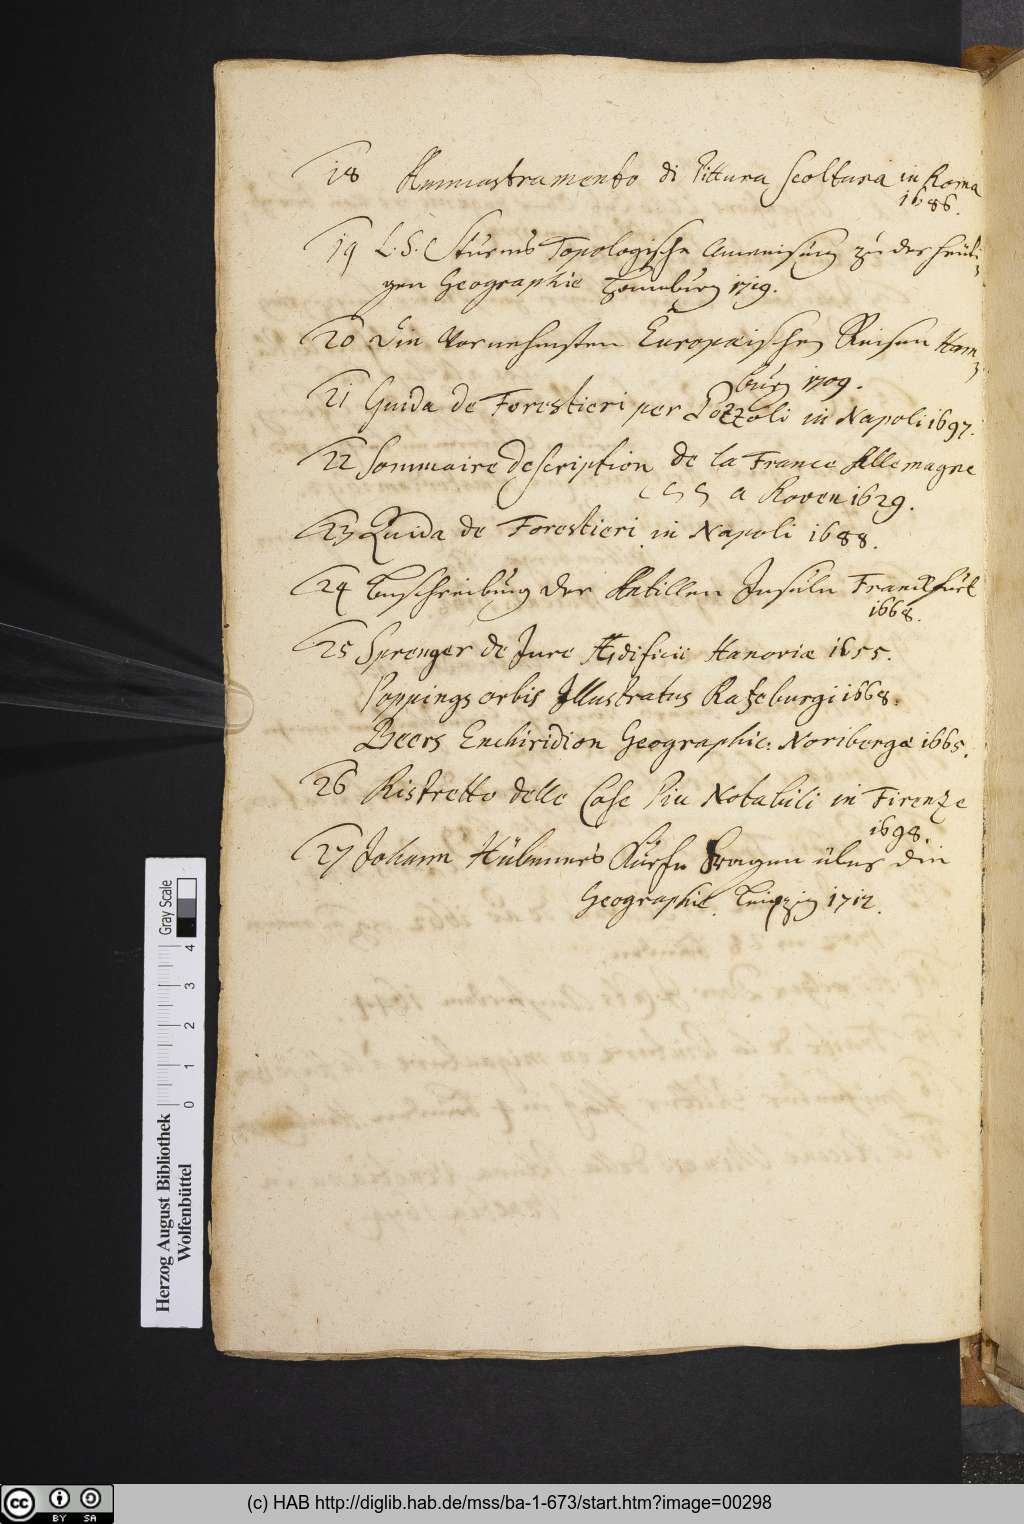 18 Ammastramento di Pittura Scoltura in Roma
1686.
19 L. C. Sturms Topologische Anweisung zu der heuti-
gen Geographie Hamburg 1719.
20 Die Vornehmsten Europæischen Reisen Ham-
burg 1709.
21 Guida de Forestieri per Pozzoli in Napoli 1697.
22 Sommaire Description de la France Allemagne
a Roven 1629.
23 Guida de Forestieri in Napoli 1688.
24 Beschreibung der Antillen Insuln Franckfurt
1668.
25 Sprenger de Jure Ædificii Hanoviæ 1655.
Poppings orbis Illustratus Ratzeburgi 1668.
Beers Enchiridion Geographic: Noribergæ 1665.
26 Ristretto delle Case Piu Notabili in Firenze
1698.
27 Johann Hübners Kurtze Fragen über die
Geographie. Leipzig 1712.
Gray Scale
0 1 2 3 4
Herzog August Bibliothek
Wolfenbüttel
cc BY SA
(c) HAB http://diglib.hab.de/mss/ba-1-673/start.htm?image=00298